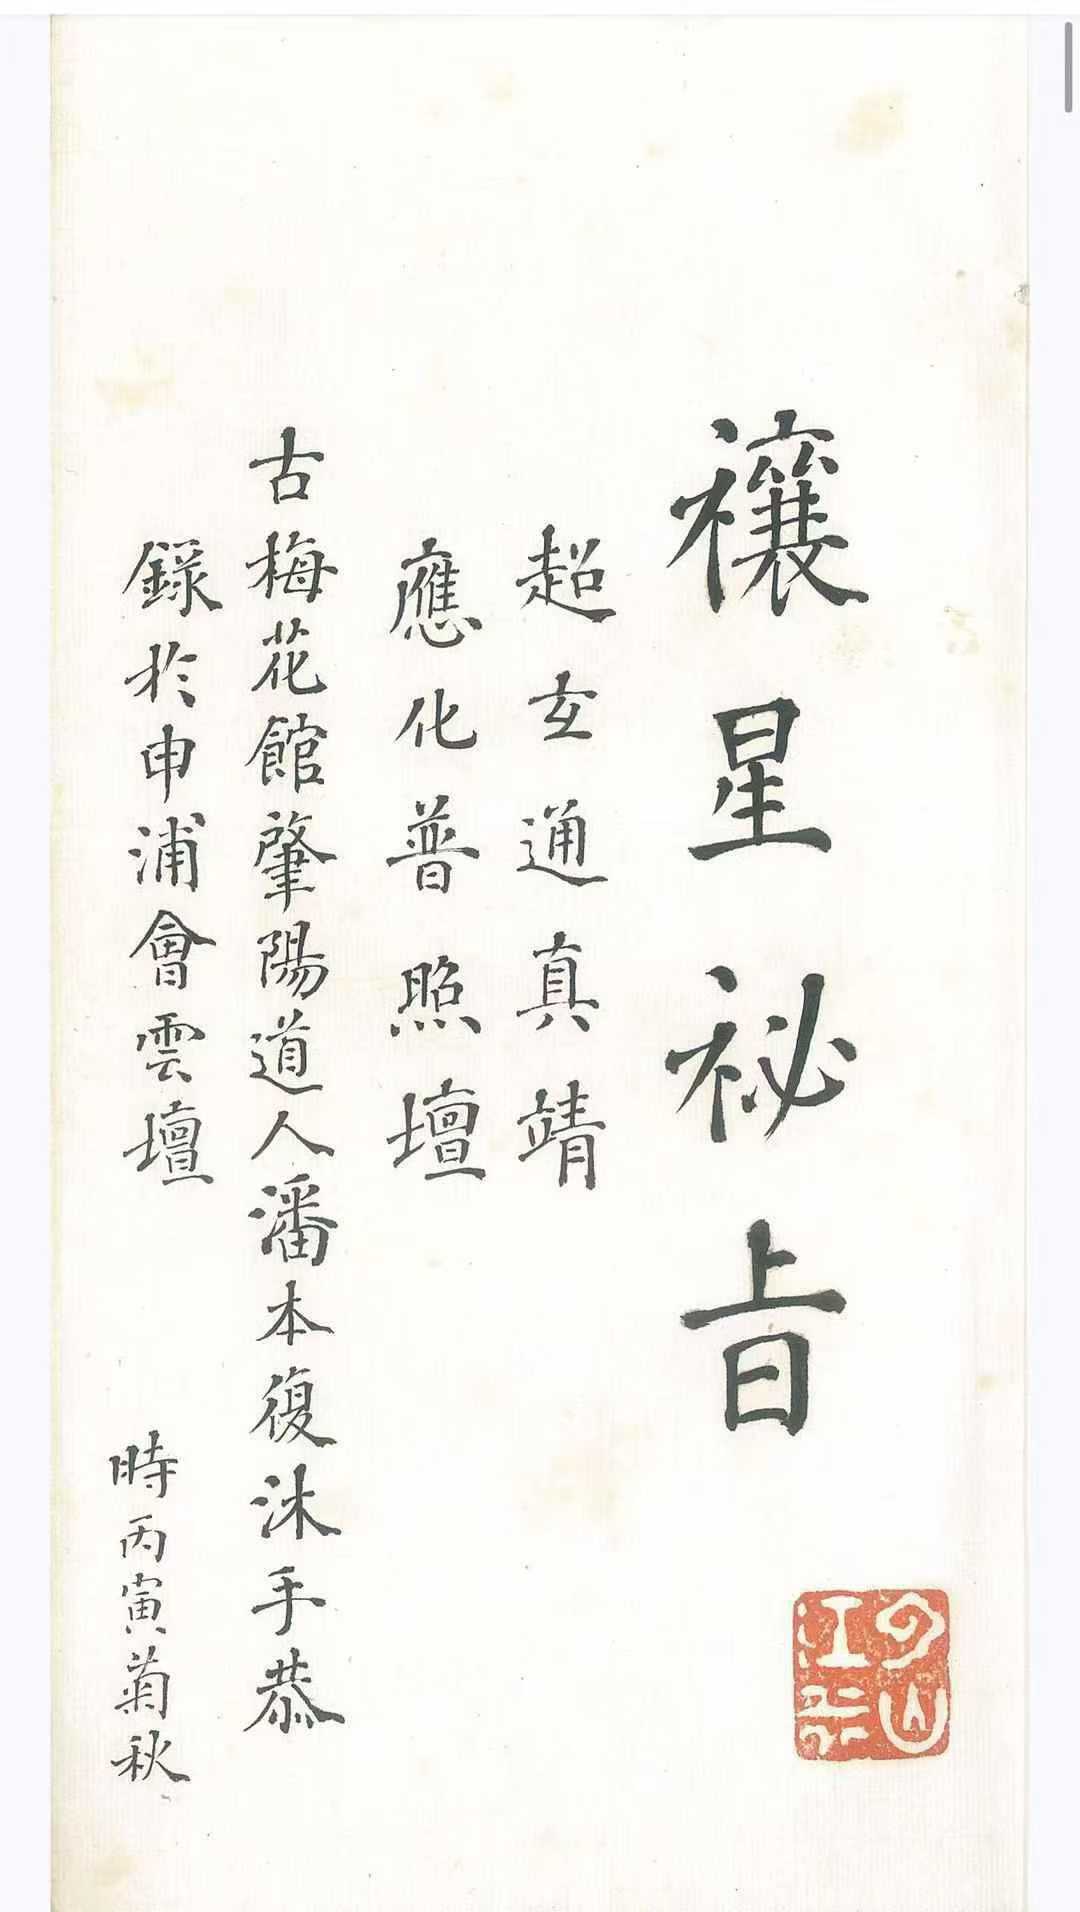 禳星祕旨
超玄通真靖
應化普照壇
古梅花館肇陽道人潘本復沐手恭
錄於申浦會雲壇
時丙寅菊秋